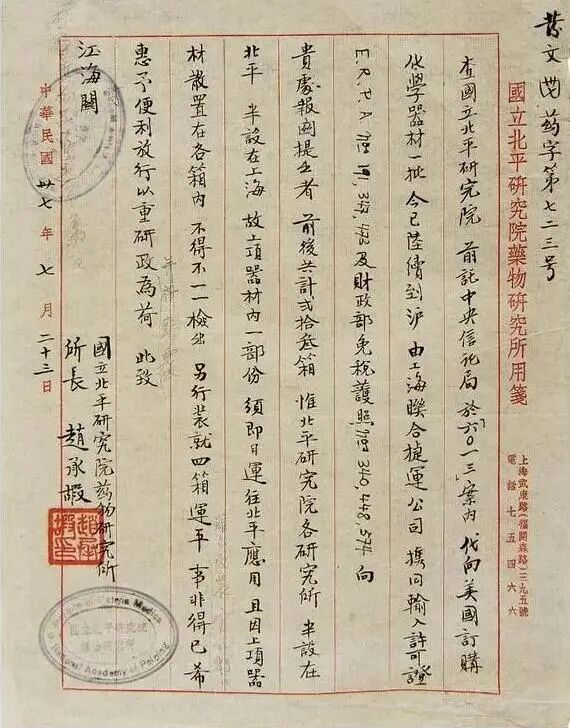 發文昆药字第七二三号
國立北平研究院藥物研究所用箋
上海武康路(福開森路)三九五號
電話七五四六六
查國立北平研究院 前託中央信託局於 案內 代向美國訂購
化學器材一批 今已陸續到沪 由上海聯合捷運公司 携同輸入許可證
E.R.P.A 及財政部免稅護照 向
貴處報關提出者 前後共計弍拾叁箱 惟北平研究院各研究所 半設在
北平 半設在上海 故上項器材內一部份 須即日運往北平應用 且因上項器
材散置在各箱內 不得不一一檢出 另行裝就四箱運平 事非得已 希
惠予便利放行以重研政為荷 此致
江海關
國立北平研究院药物研究所
所長 趙承嘏
中華民國卅七年七月二十三日
Institute of Materia Medica
National Academy of Peiping